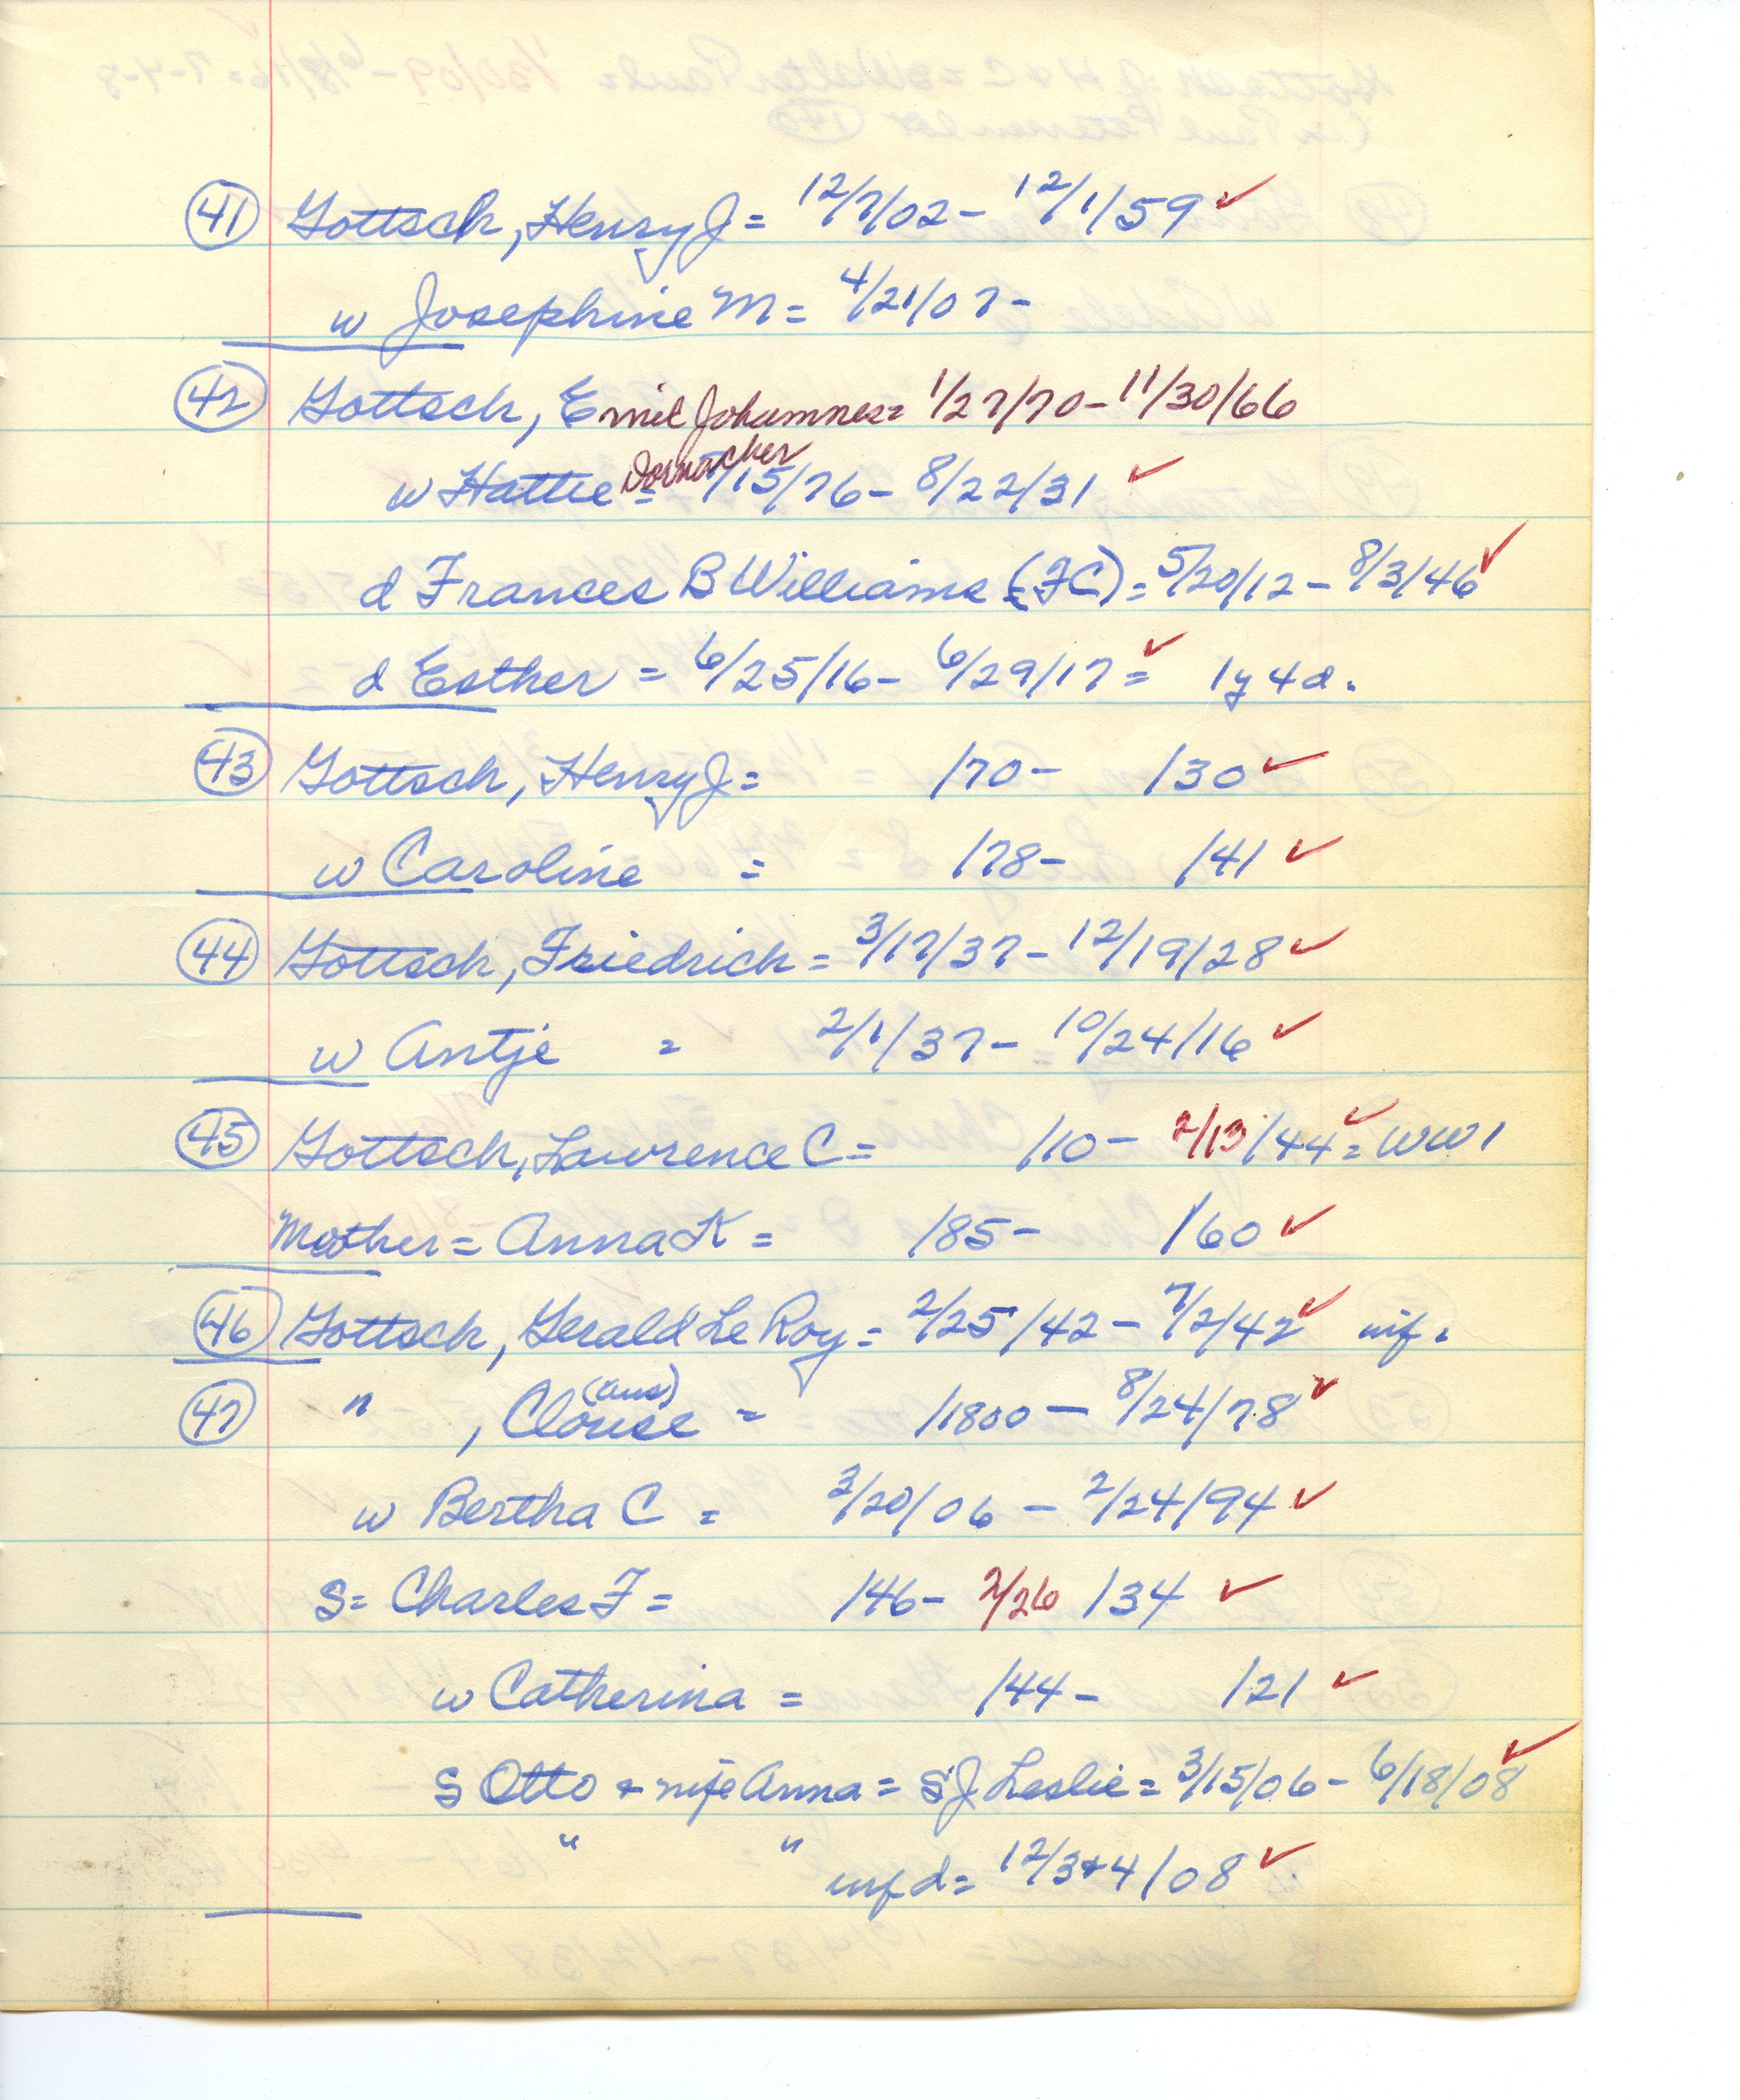 (41) Gottsch, Henry J = 12/7/02 - 12/1/59 ✓
w Josephine M = 4/21/07 -
(42) Gottsch, Emil Johannes = 1/27/70 - 11/30/66
Dornacher
w Hattie = 5/15/76 - 8/22/31 ✓
d Frances B Williams (FC) = 5/20/12 - 8/3/46 ✓
d Esther = 6/25/16 - 6/29/17 = ✓ 1y 4d.
(43) Gottsch, Henry J = /70 - /30 ✓
w Caroline = /78 - /41 ✓
(44) Gottsch, Friedrich = 3/17/37 - 12/19/28 ✓
w Antje = 2/1/37 - 10/24/16 ✓
(45) Gottsch, Lawrence C = /10 - 2/13/44 ✓ = WW1
Mother = Anna K = /85 - /60 ✓
(46) Gottsch, Gerald Le Roy = 2/25/42 - 7/2/42 ✓ inf.
(aus)
(47) " , Clouse = /1800 - 8/24/78 ✓
w Bertha C = 3/20/06 - 2/24/94 ✓
S = Charles F = /46 - 2/26 /34 ✓
w Catherina = /44 - /21 ✓
S Otto + wife Anna = S J Leslie = 3/15/06 - 6/18/08 ✓
" " inf d = 12/3+4/08 ✓